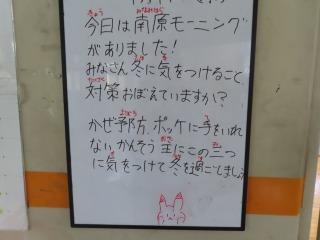 今日は南原モーニング
がありました!
みなさん冬に気をつけること
対策おぼえていますか?
かぜ予防、ポッケに手をいれ
ない、かんそう 主にこの三つ
に気をつけて冬を過ごしましょう